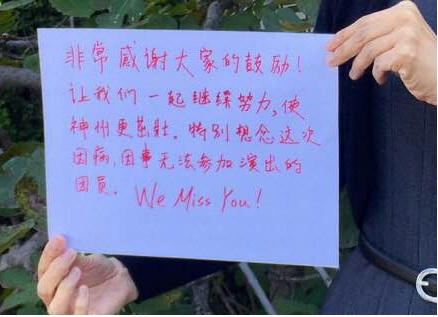 非常感谢大家的鼓励！
让我们一起继续努力,使
神州更茁壮。特别想念这次
因病,因事无法参加演出的
团员。 We Miss You!